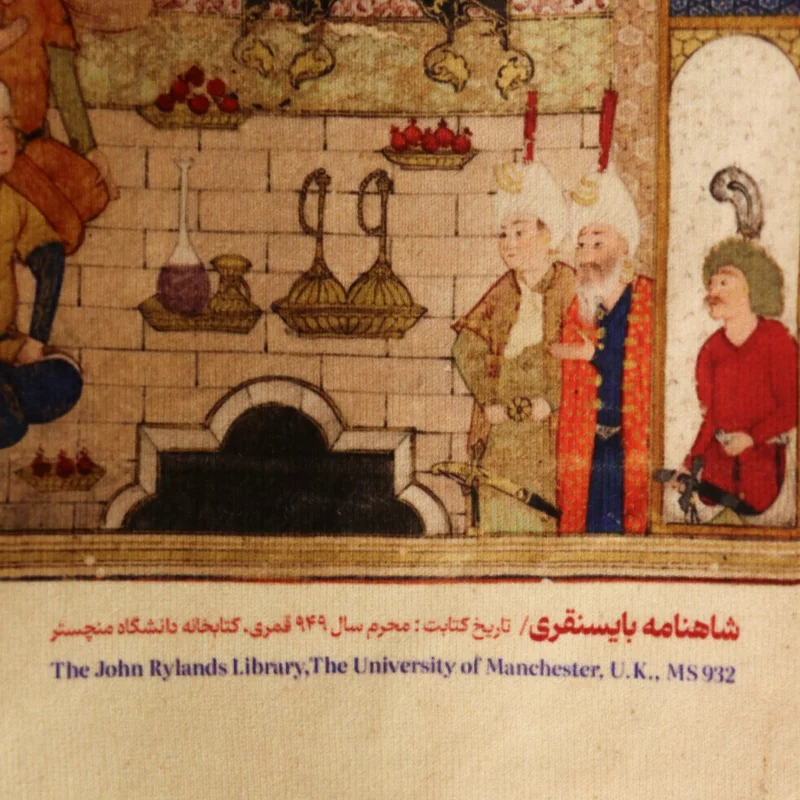 شاهنامه بایسنقری/ تاریخ کتابت: محرم سال ۹۴۹ قمری، کتابخانه دانشگاه منچستر
The John Rylands Library,The University of Manchester, U.K., MS 932